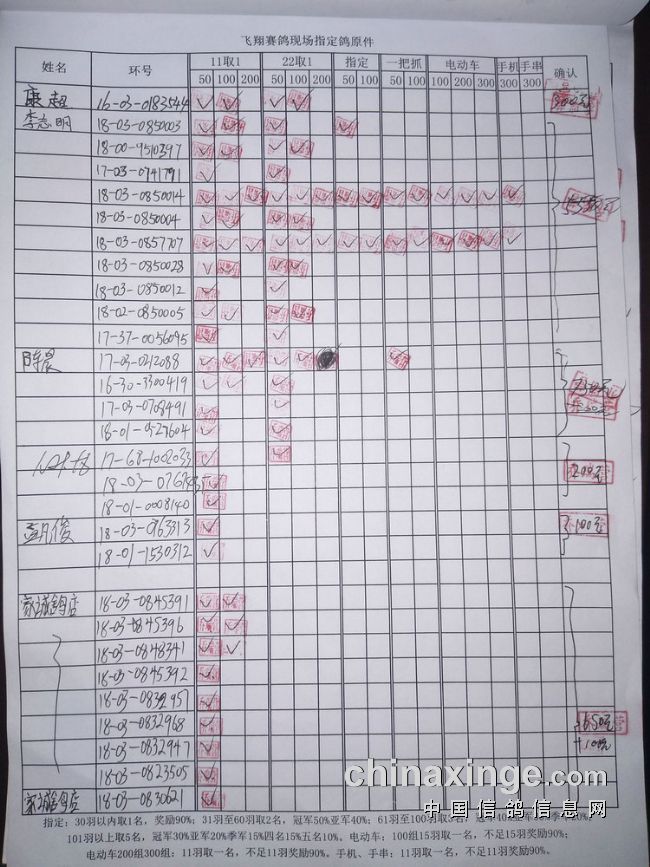 飞翔赛鸽现场指定鸽原件
姓名 环号 11取1 22取1 指定 一把抓 电动车 手机 手串 确认
50 100 200 50 100 200 50 100 50 100 100 200 300 300 300
康超 16-03-0183544 300元
李志明 18-03-0850003
18-00-9510397
17-03-0741791
18-03-0850014
18-03-0850004
18-03-0857707
18-03-0850028
18-03-0850012
18-02-0850005
17-37-0056095
陈晨 17-03-0242088
16-30-3300419
17-03-0708491
18-01-0527604
17-68-1002033 200元
18-03-076
18-01-0008140
孟凡俊 18-03-0963313 100元
18-01-1530312
家诚鸽店 18-03-0845391
18-03-0845396
18-03-0848341
18-03-0845392
18-03-0832957
18-03-0832968 650元
18-03-0832947 +100元
18-03-0823505
家诚鸽店 18-03-0830621
chinaxinge.com
中国信鸽信息网
指定：30羽以内取1名，奖励90%；31羽至60羽取2名，冠军50%亚军40%；61羽至100羽取3名，冠军
101羽以上取5名，冠军30%亚军20%季军15%四名15%五名10%。电动车：100组15羽取一名，不足15羽奖励90%；
电动车200组300组：11羽取一名，不足11羽奖励90%。手机、手串：11羽取一名，不足11羽奖励90%。